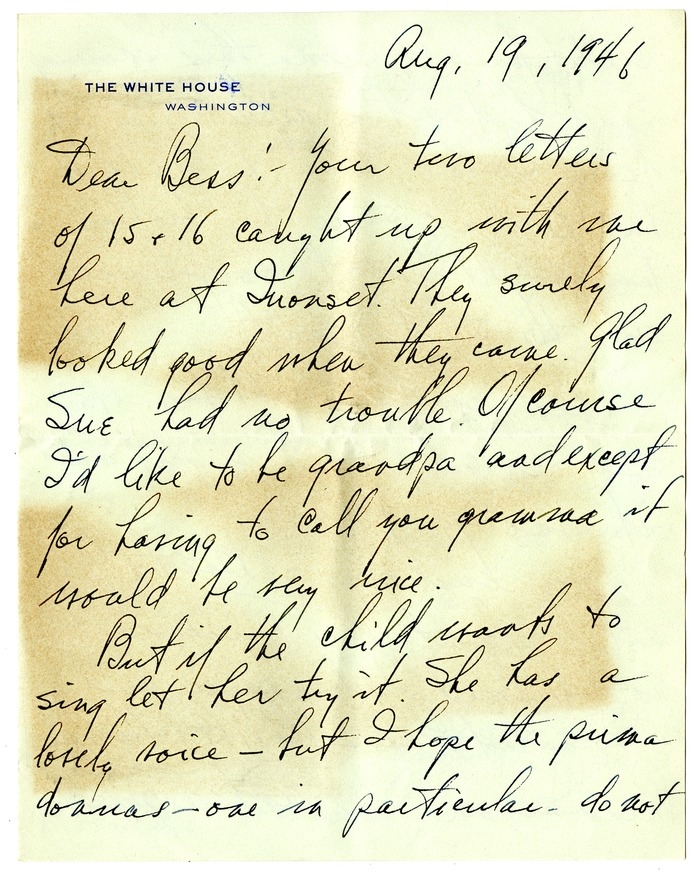 Aug. 19, 1946
THE WHITE HOUSE
WASHINGTON
Dear Bess:- Your two letters
of 15 & 16 caught up with me
here at Quonset. They surely
looked good when they came. Glad
Sue had no trouble. Of course
I'd like to be grandpa and except
for having to call you gramma it
would be very nice.
But if the child wants to
sing let her try it. She has a
lovely voice – but I hope the prima
donnas – one in particular – do not